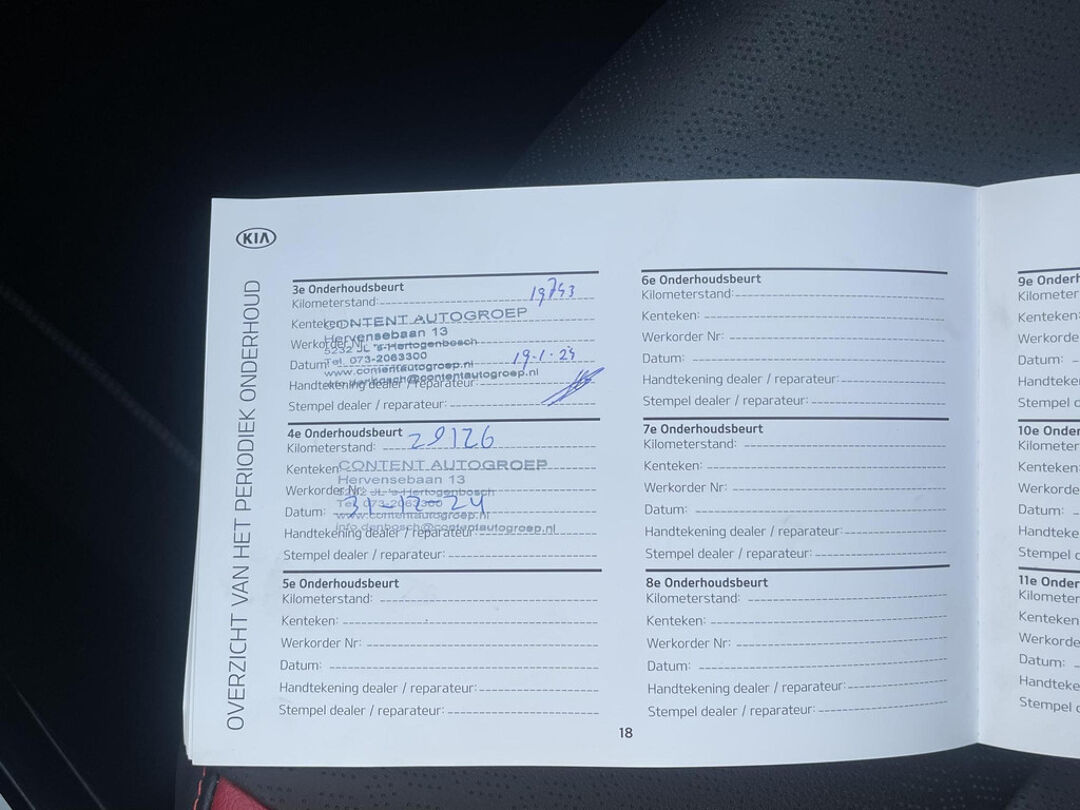 KIA
OVERZICHT VAN HET PERIODIEK ONDERHOUD
3e Onderhoudsbeurt
Kilometerstand: 19743
Kenteken:
CONTENT AUTOGROEP
Hervensebaan 13
Werkorder Nr:
5232 JL 's-Hertogenbosch
Tel. 073-2063300
Datum: 19-1-25
www.contentautogroep.nl
Handtekening dealer / reparateur:
info.denbosch@contentautogroep.nl
Stempel dealer / reparateur:
4e Onderhoudsbeurt
Kilometerstand: 29126
Kenteken:
CONTENT AUTOGROEP
Hervensebaan 13
Werkorder Nr:
5232 JL 's-Hertogenbosch
Tel. 073-2063300
Datum: 31-12-24
www.contentautogroep.nl
info.denbosch@contentautogroep.nl
Handtekening dealer / reparateur:
Stempel dealer / reparateur:
5e Onderhoudsbeurt
Kilometerstand:
Kenteken:
Werkorder Nr:
Datum:
Handtekening dealer / reparateur:
Stempel dealer / reparateur:
6e Onderhoudsbeurt
Kilometerstand:
Kenteken:
Werkorder Nr:
Datum:
Handtekening dealer / reparateur:
Stempel dealer / reparateur:
7e Onderhoudsbeurt
Kilometerstand:
Kenteken:
Werkorder Nr:
Datum:
Handtekening dealer / reparateur:
Stempel dealer / reparateur:
8e Onderhoudsbeurt
Kilometerstand:
Kenteken:
Werkorder Nr:
Datum:
Handtekening dealer / reparateur:
Stempel dealer / reparateur:
18
9e Onderh
Kilometer
Kenteken:
Werkorde
Datum:
Handteke
Stempel d
10e Onder
Kilometer
Kenteken:
Werkorde
Datum:
Handteke
Stempel d
11e Onder
Kilometer
Kenteken
Werkorde
Datum:
Handteke
Stempel d